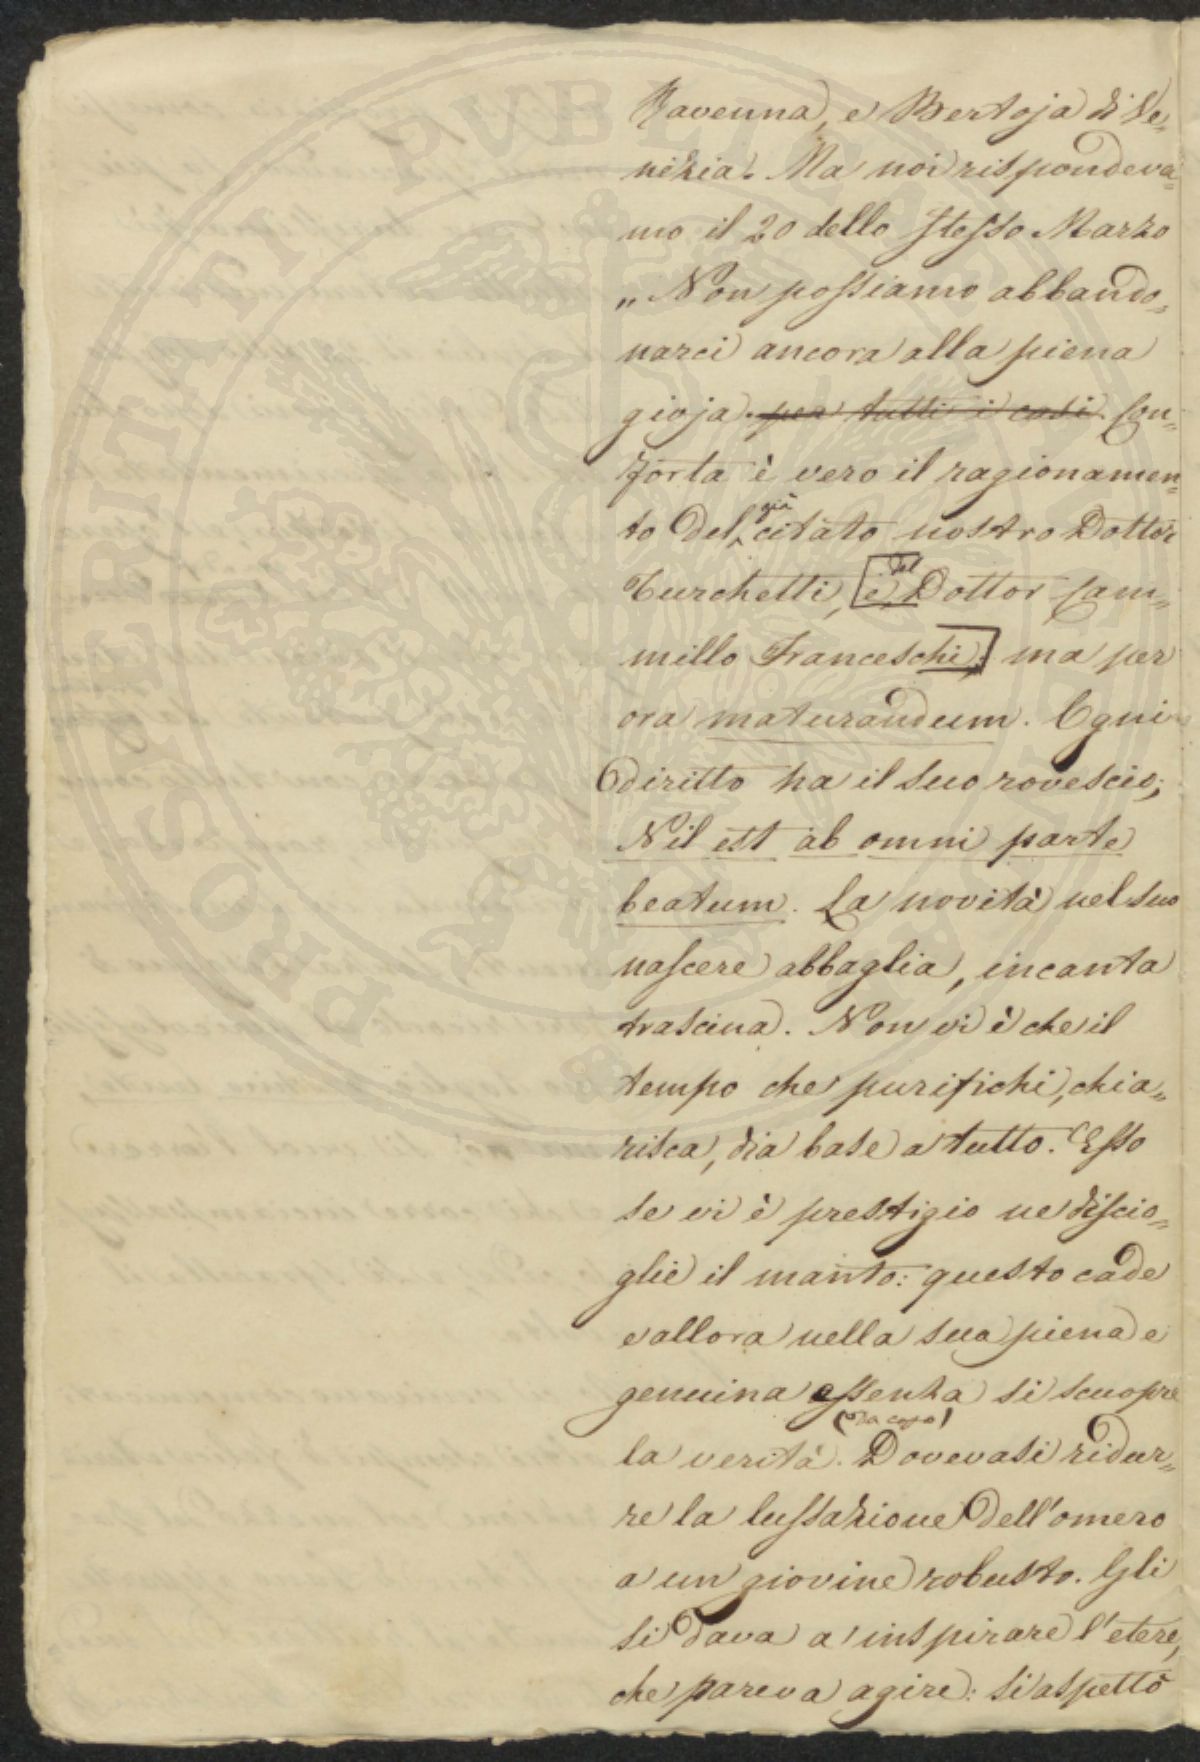 Ravenna, e Bertoja di Ve=
nezia. Ma noi rispondeva=
mo il 20 dello stesso Marzo
„ Non possiamo abbando=
narci ancora alla piena
gioja. per tutti i casi. Con=
forta è vero il ragionamen=
to del già citato nostro Dottor
Turchetti, e del Dottor Cam=
millo Franceschi; ma per
ora maturandum. Ogni
diritto ha il suo rovescio;
Nil est ab omni parte
beatum. La novità nel suo
nascere abbaglia, incanta
trascina. Non vi è che il
tempo che purifichi, chia=
risca, dia base a tutto. Esso
se vi è prestigio ne discio=
glie il manto: questo cade
e allora nella sua piena e
genuina essenza si scuopre
la verità. Dovevasi ridur=
re la lussazione dell'omero
a un giovine robusto. Gli
si dava a inspirare l'etere,
che pareva agire: si aspettò
PROSPERITATI PVBLICAE